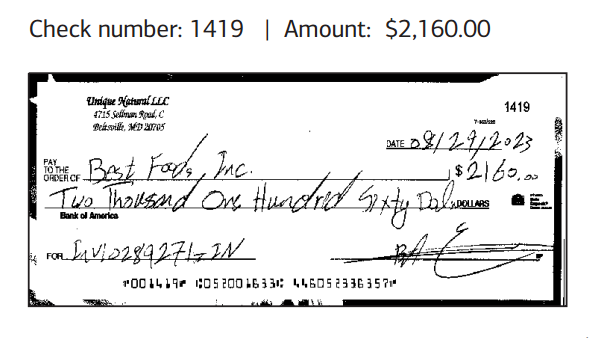 Check number: 1419 | Amount: $2,160.00
Unique Natural LLC
1419
4715 Sellman Road, C
Beltsville, MD 20705
DATE 08/29/2023
PAY TO THE ORDER OF Best Foods, Inc. $2160.00
Two Thousand One Hundred Sixty Dol DOLLARS
Bank of America
FOR Inv:0289271-IN
⑈001419⑈ ⑆052001633⑆ 446052336357⑈